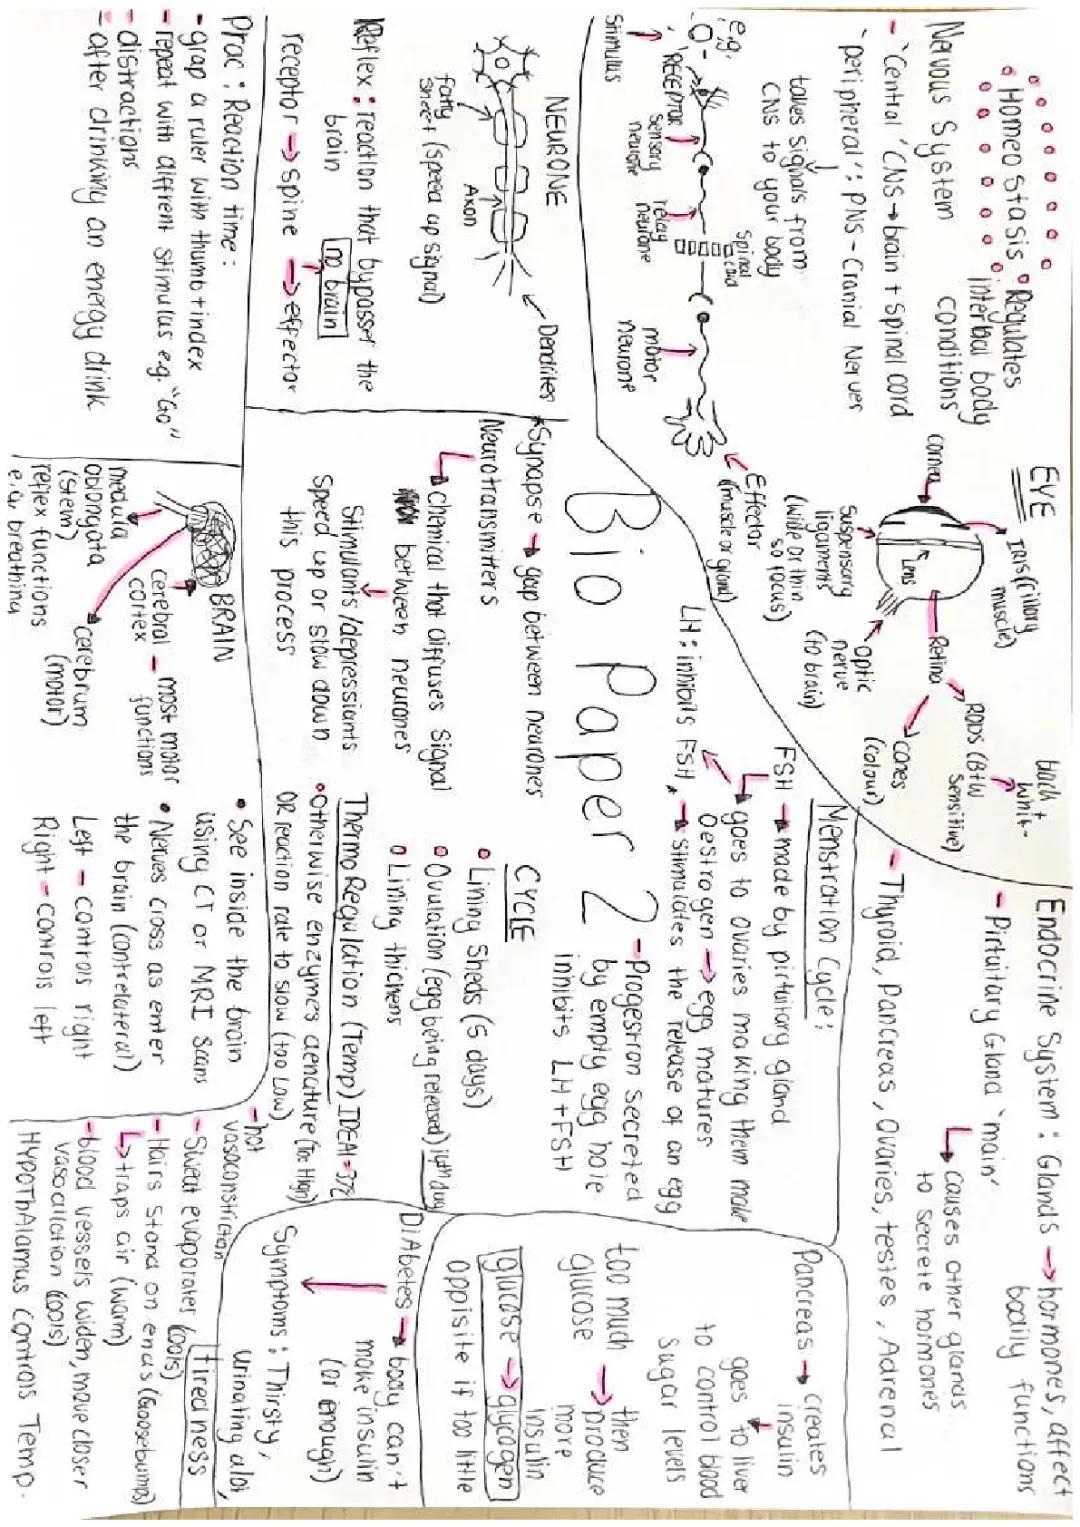 Bio Paper 2
• Homeostasis • Regulates
interbal body
conditions
Nervous System
- 'Central' CNS → brain + Spinal cord
- 'peripheral': PNS - Cranial Nerves
takes signals from
CNS to your body
e.g.
'RECEPTOR
Stimulus
Sensory
neurone
relay
neurone
Spinal
cord
motor
neurone
Effector
(muscle or gland)
EYE
cornea
IRIS (Cillary
muscle)
Lens
Suspensory
ligaments
(wide or thin
so focus)
Retina
Optic
nerve
(to brain)
RODS (B+W
Sensitive)
black +
whit-
cones
(colour)
Endocrine System: Glands → hormones, affect
bodily functions
- Pirtuitary Gland 'main'
↳ causes other glands
to secrete hormones
- Thyroid, Pancreas, Ovaries, testes, Adrenal
NEURONE
Dendrites
Axon
fatty
sheet (speed up signal)
Reflex: reaction that bypasser the
brain
no brain
receptor → spine → effector
Prac: Reaction time:
- grap a ruler with thumb + index
- repeat with diffrent stimulus e.g. "Go"
- distractions
- after drinking an energy drink
* Synapse → gap between neurones
Neurotransmitters
↳ chemical that diffuses signal
between neurones
Stimulants/depressiants
Speed up or slow down
this process
Menstration Cycle:
FSH → made by pirtuitary gland
↳ goes to ovaries making them make
Oestrogen → egg matures
LH: inhibits FSH, → stimulates the release of an egg
- Progestron secreted
by empty egg hole
inhibits LH + FSH
CYCLE
• Lining Sheds (5 days)
• Ovulation (egg being released) 14th day
• Lining thickens
Thermo Regulation (Temp) IDEAL = 37°C
• Otherwise enzymes denature (too High)
OR reaction rate to slow (too Low)
BRAIN
medula
oblongata
(stem)
reflex functions
e.g. breathing
cerebral - most motor
cortex functions
cerebrum
(motor)
• See inside the brain
using CT or MRI scans
• Nerves cross as enter
the brain (contrelateral)
Left - controls right
Right - controls left
- hot
vasoconstriction
- Sweat evaporates (cools)
- Hairs stand on ends (Goosebumps)
↳ traps air (warm)
- blood vessels widen, move closer
vasodilation (cools)
HYPOTHAlamus controls Temp.
Pancreas → creates
insulin
goes to liver
to control blood
sugar levels
too much then
glucose → produce
more
insulin
glucose → glycogen
Oppisite if too little
DIAbetes → body can't
make insulin
(or enough)
Symptoms: Thirsty,
urinating alot,
tiredness